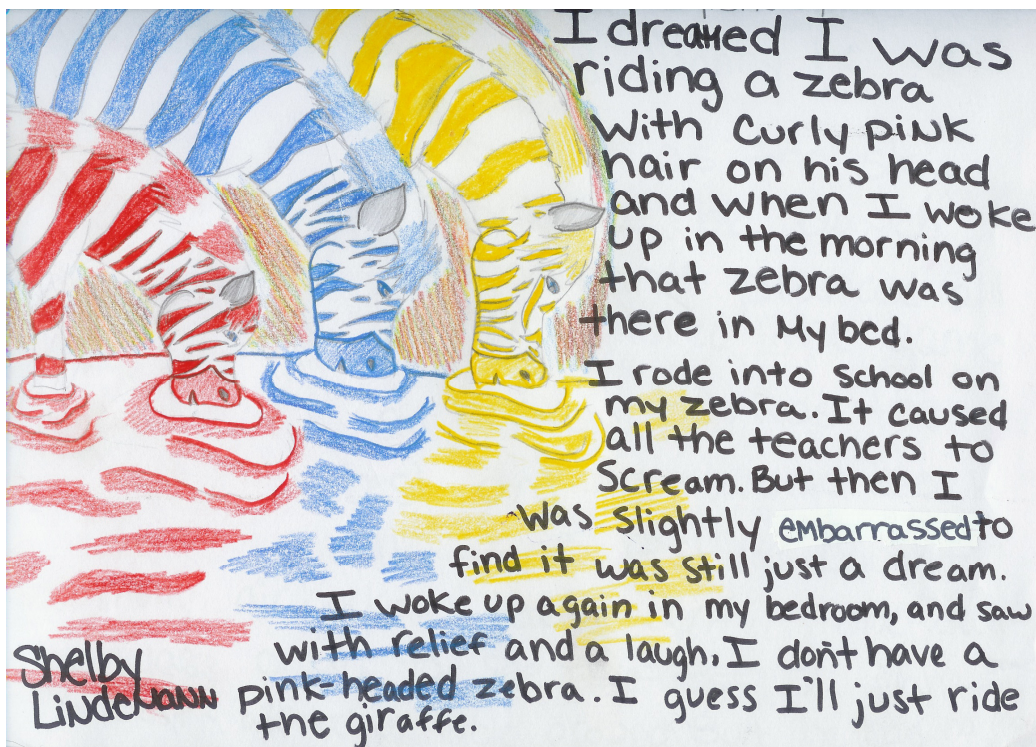 I dreamed I was
riding a zebra
with curly pink
hair on his head
and when I woke
up in the morning
that zebra was
there in My bed.
I rode into school on
my zebra. It caused
all the teachers to
scream. But then I
was slightly eMbarrassed to
find it was still just a dream.
I woke up again in my bedroom, and saw
with relief and a laugh, I don't have a
pink-headed zebra. I guess I'll just ride
the giraffe.
Shelby
Lindemann